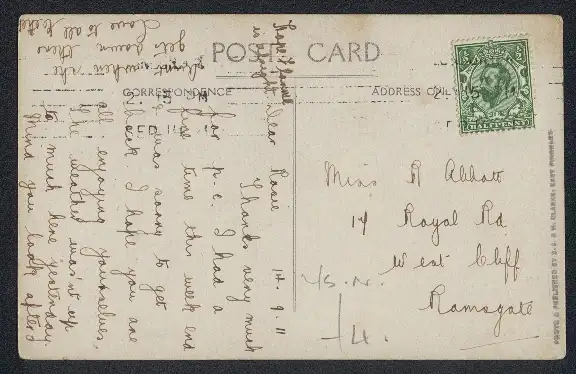 POST CARD
CORRESPONDENCE
ADDRESS ONLY
HALFPENNY
Hope Fannel
is alright
Dear Rosie 14.9.11
Thanks very much
for p.c. I had a
fine time this week end
I was sorry to get
back. I hope you are
all enjoying yourselves.
The weather wasn't up
to much here yesterday.
Mind you look after
when she
get down there
Love to all
Miss R Abbott
14 Royal Rd
West Cliff
Ramsgate
4.
PHOTO & PUBLISHED BY W. CLARKE, EAST FINCHLEY.